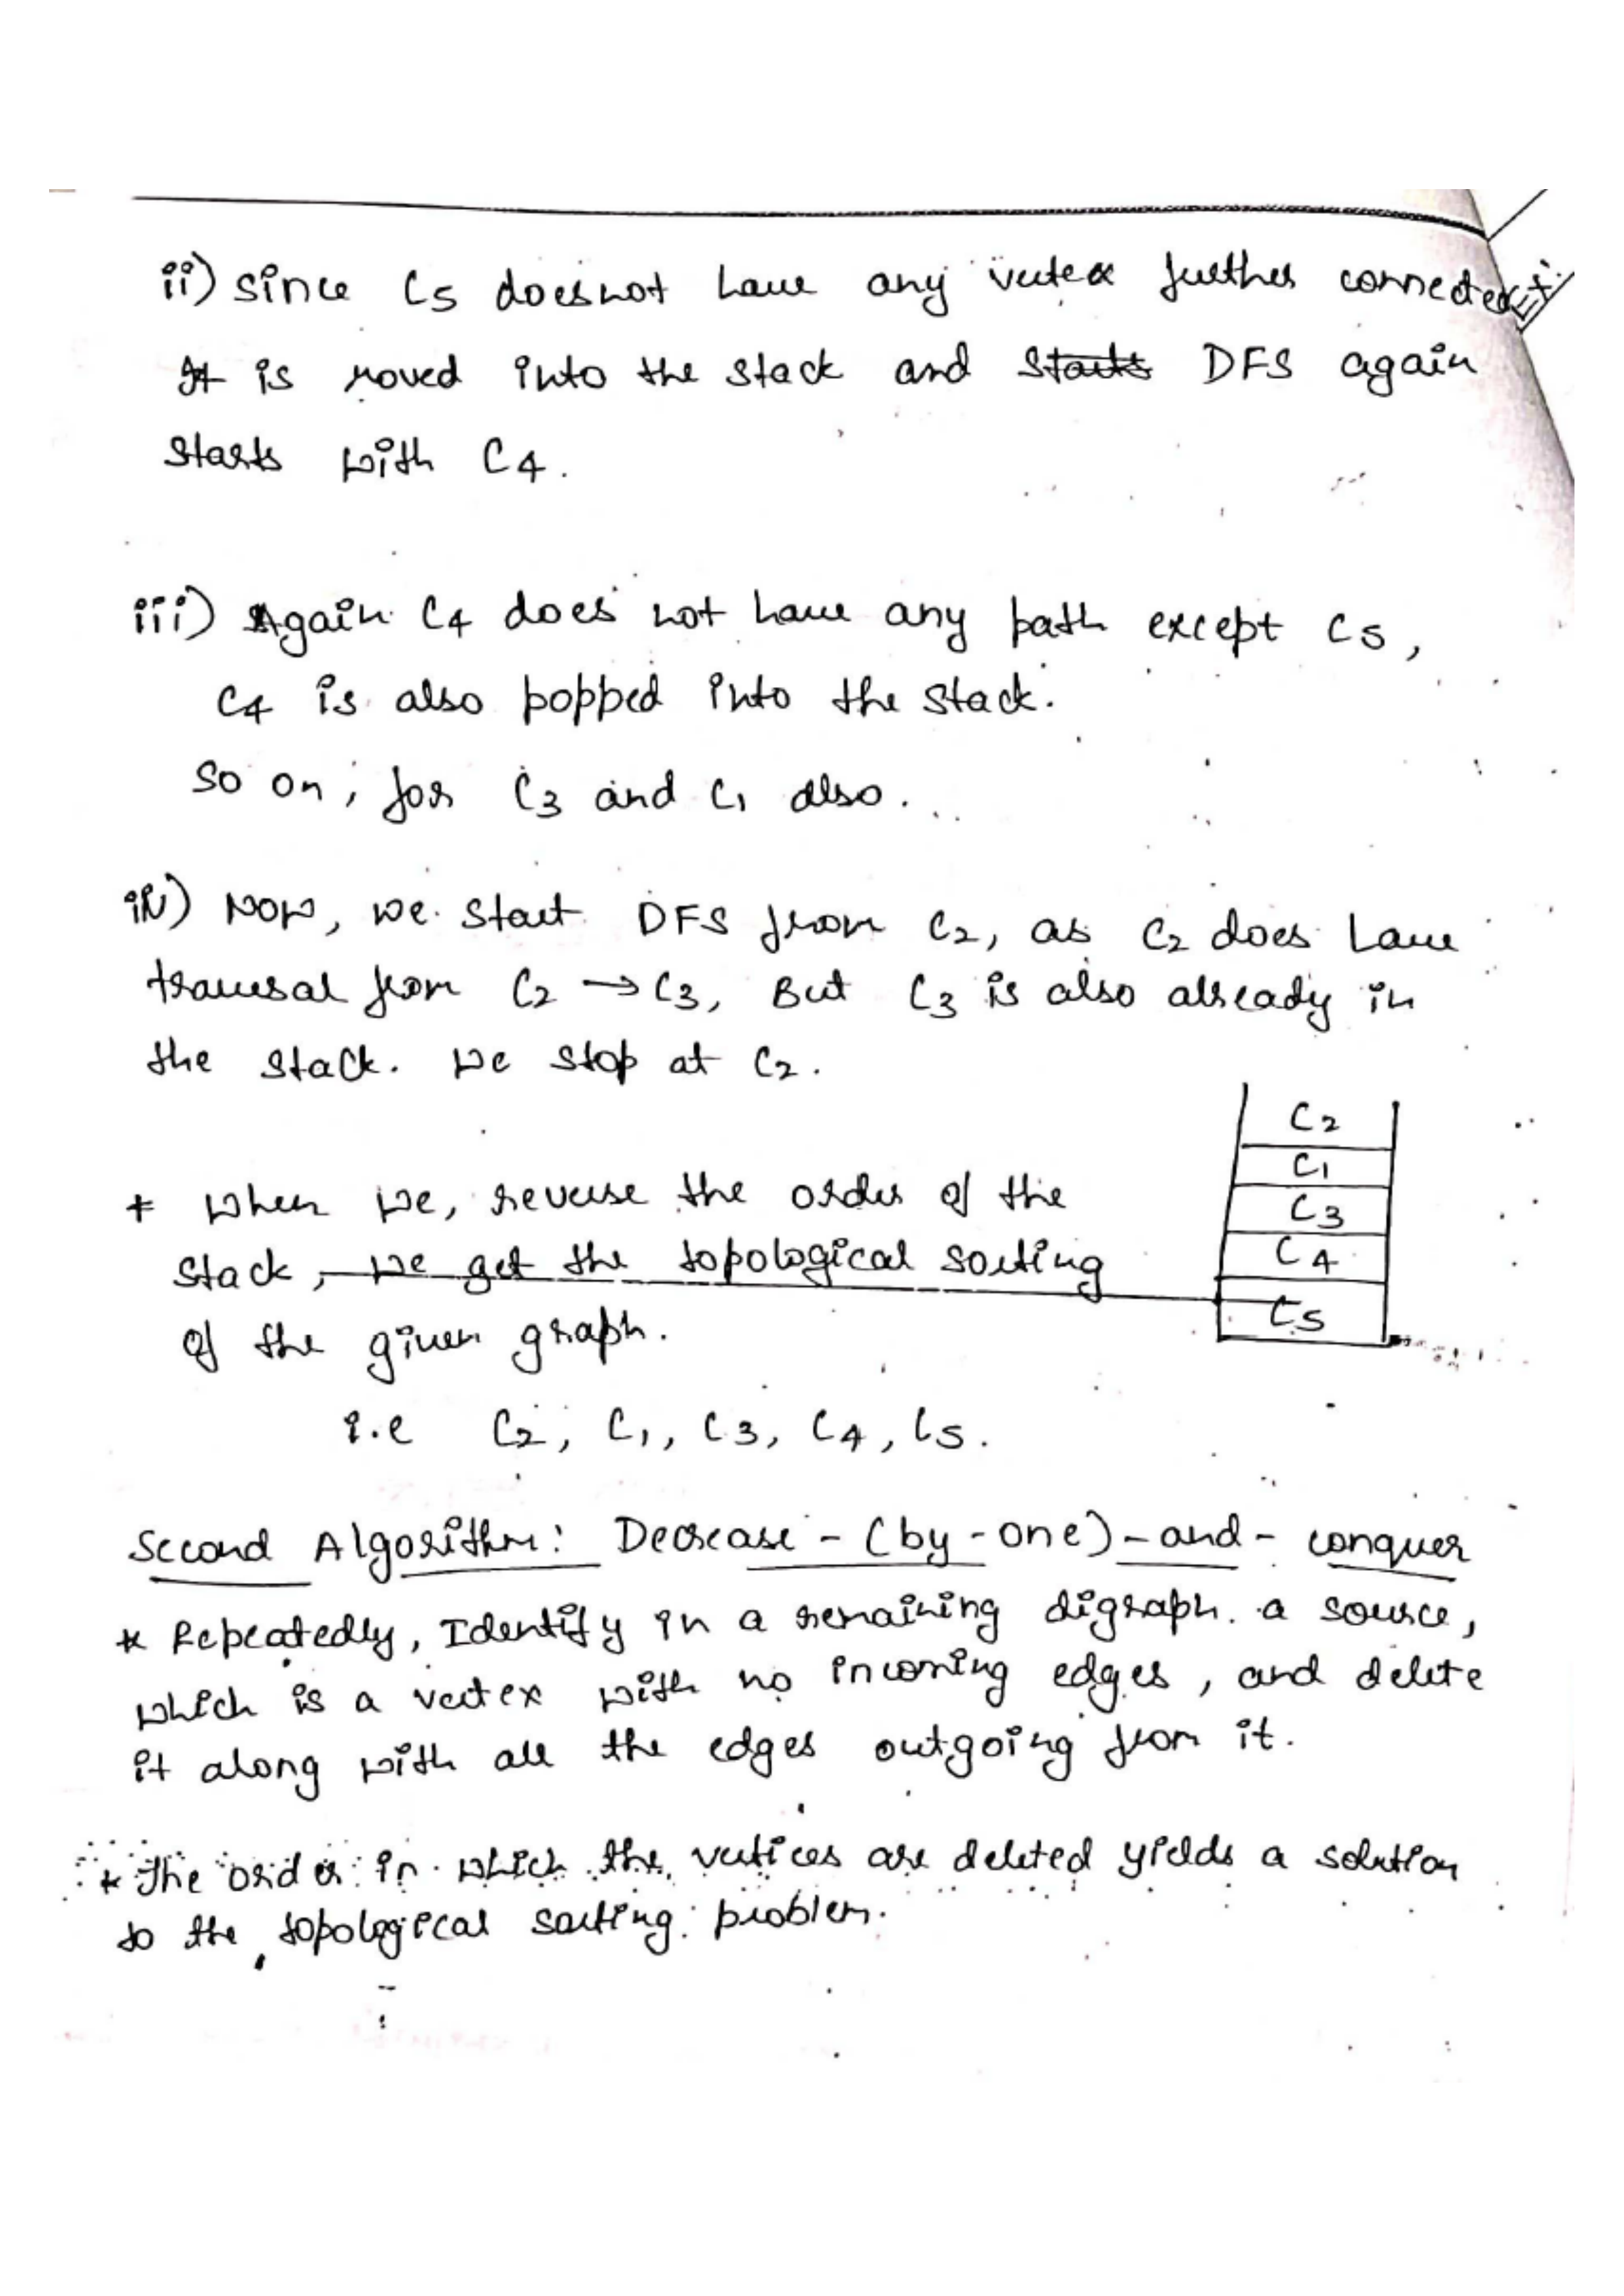 ii) Since C5 doesnot have any vertex further connected
It is moved into the stack and starts DFS again
starts with C4.
iii) Again C4 does not have any path except C5,
C4 is also popped into the stack.
So on, for C3 and C1 also.
iv) Now, we start DFS from C2, as C2 does have
traversal from C2 → C3, But C3 is also already in
the stack. We stop at C2.
C2
C1
C3
C4
C5
* When we, reverse the order of the
stack, we get the topological sorting
of the given graph.
i.e C2, C1, C3, C4, C5.
Second Algorithm: Decrease - (by - one) - and - conquer
* Repeatedly, Identify in a remaining digraph a source,
which is a vertex with no incoming edges, and delete
it along with all the edges outgoing from it.
* The order in which the vertices are deleted yields a solution
to the topological sorting problem.